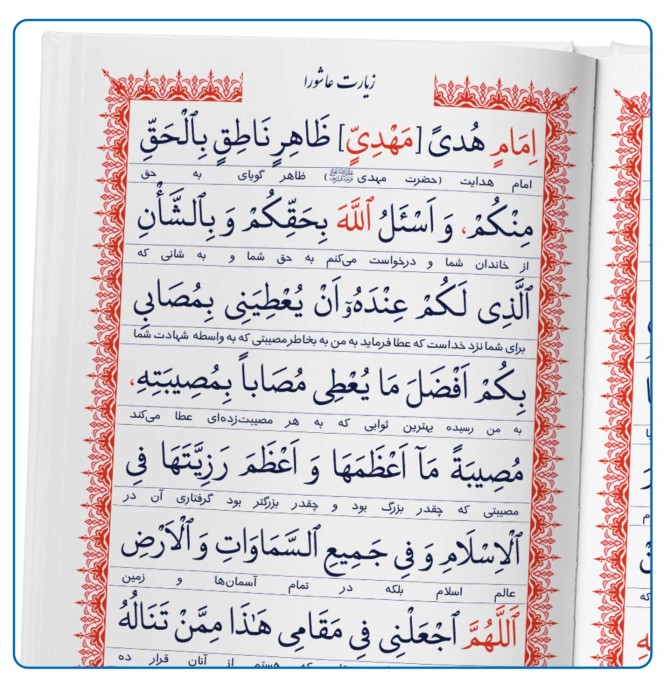 زیارت عاشورا
اِمَامِ هُدیً [مَهْدِیٍّ] ظَاهِرٍ نَاطِقٍ بِالْحَقِّ
امام هدایت (حضرت مهدی) ظاهر گویای به حق
مِنْکُمْ، وَ اَسْئَلُ اللّٰهَ بِحَقِّکُمْ وَ بِالشَّأْنِ
از خاندان شما و درخواست می‌کنم به حق شما و به شانی که
الَّذِی لَکُمْ عِنْدَهُۤ اَنْ یُعْطِیَنِی بِمُصَابِی
برای شما نزد خداست که عطا فرماید به من به بخاطر مصیبتی که به واسطه شهادت شما
بِکُمْ اَفْضَلَ مَا یُعْطِی مُصَاباً بِمُصِیبَتِهِ،
به من رسیده بهترین ثوابی که به هر مصیبت‌زده‌ای عطا می‌کند
مُصِیبَةً مَاۤ اَعْظَمَهَا وَ اَعْظَمَ رَزِیَّتَهَا فِی
مصیبتی که چقدر بزرگ بود و چقدر بزرگتر بود گرفتاری آن در
الْاِسْلَامِ وَ فِی جَمِیعِ السَّمَاوَاتِ وَ الْاَرْضِ
عالم اسلام بلکه در تمام آسمان‌ها و زمین
اَللّٰهُمَّ اجْعَلْنِی فِی مَقَامِی هٰذَا مِمَّنْ تَنَالُهُ
که هستم از آنان قرار ده